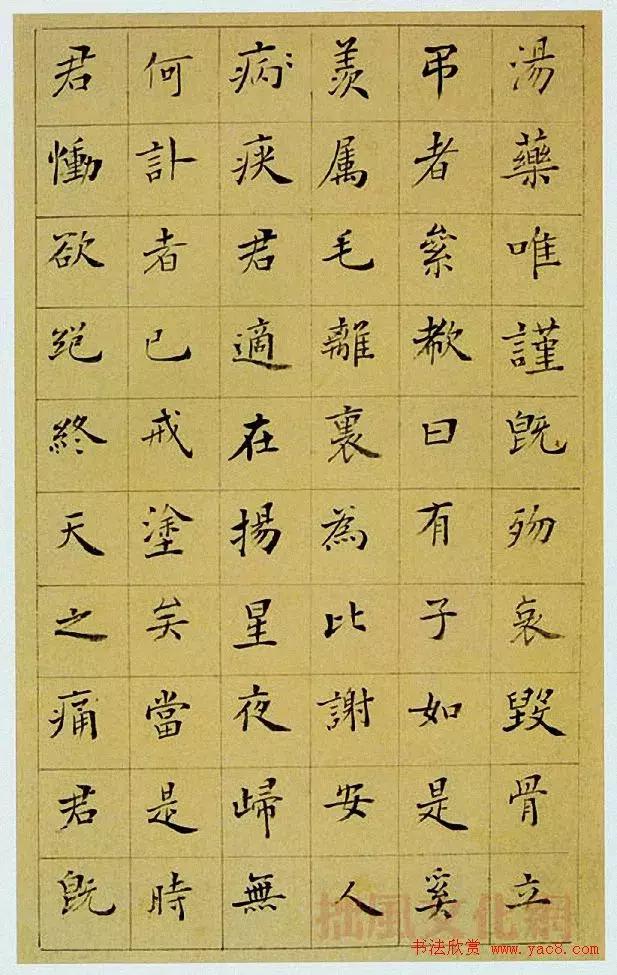 湯藥唯謹既歾哀毀骨立
弔者絫欷曰有子如是奚
羨属毛離裏為比謝安人
病〻疾君適在揚星夜歸無
何訃者已戒塗矣當是時
君慟欲絕終天之痛君既
拙風文化網
书法欣赏 www.yac8.com